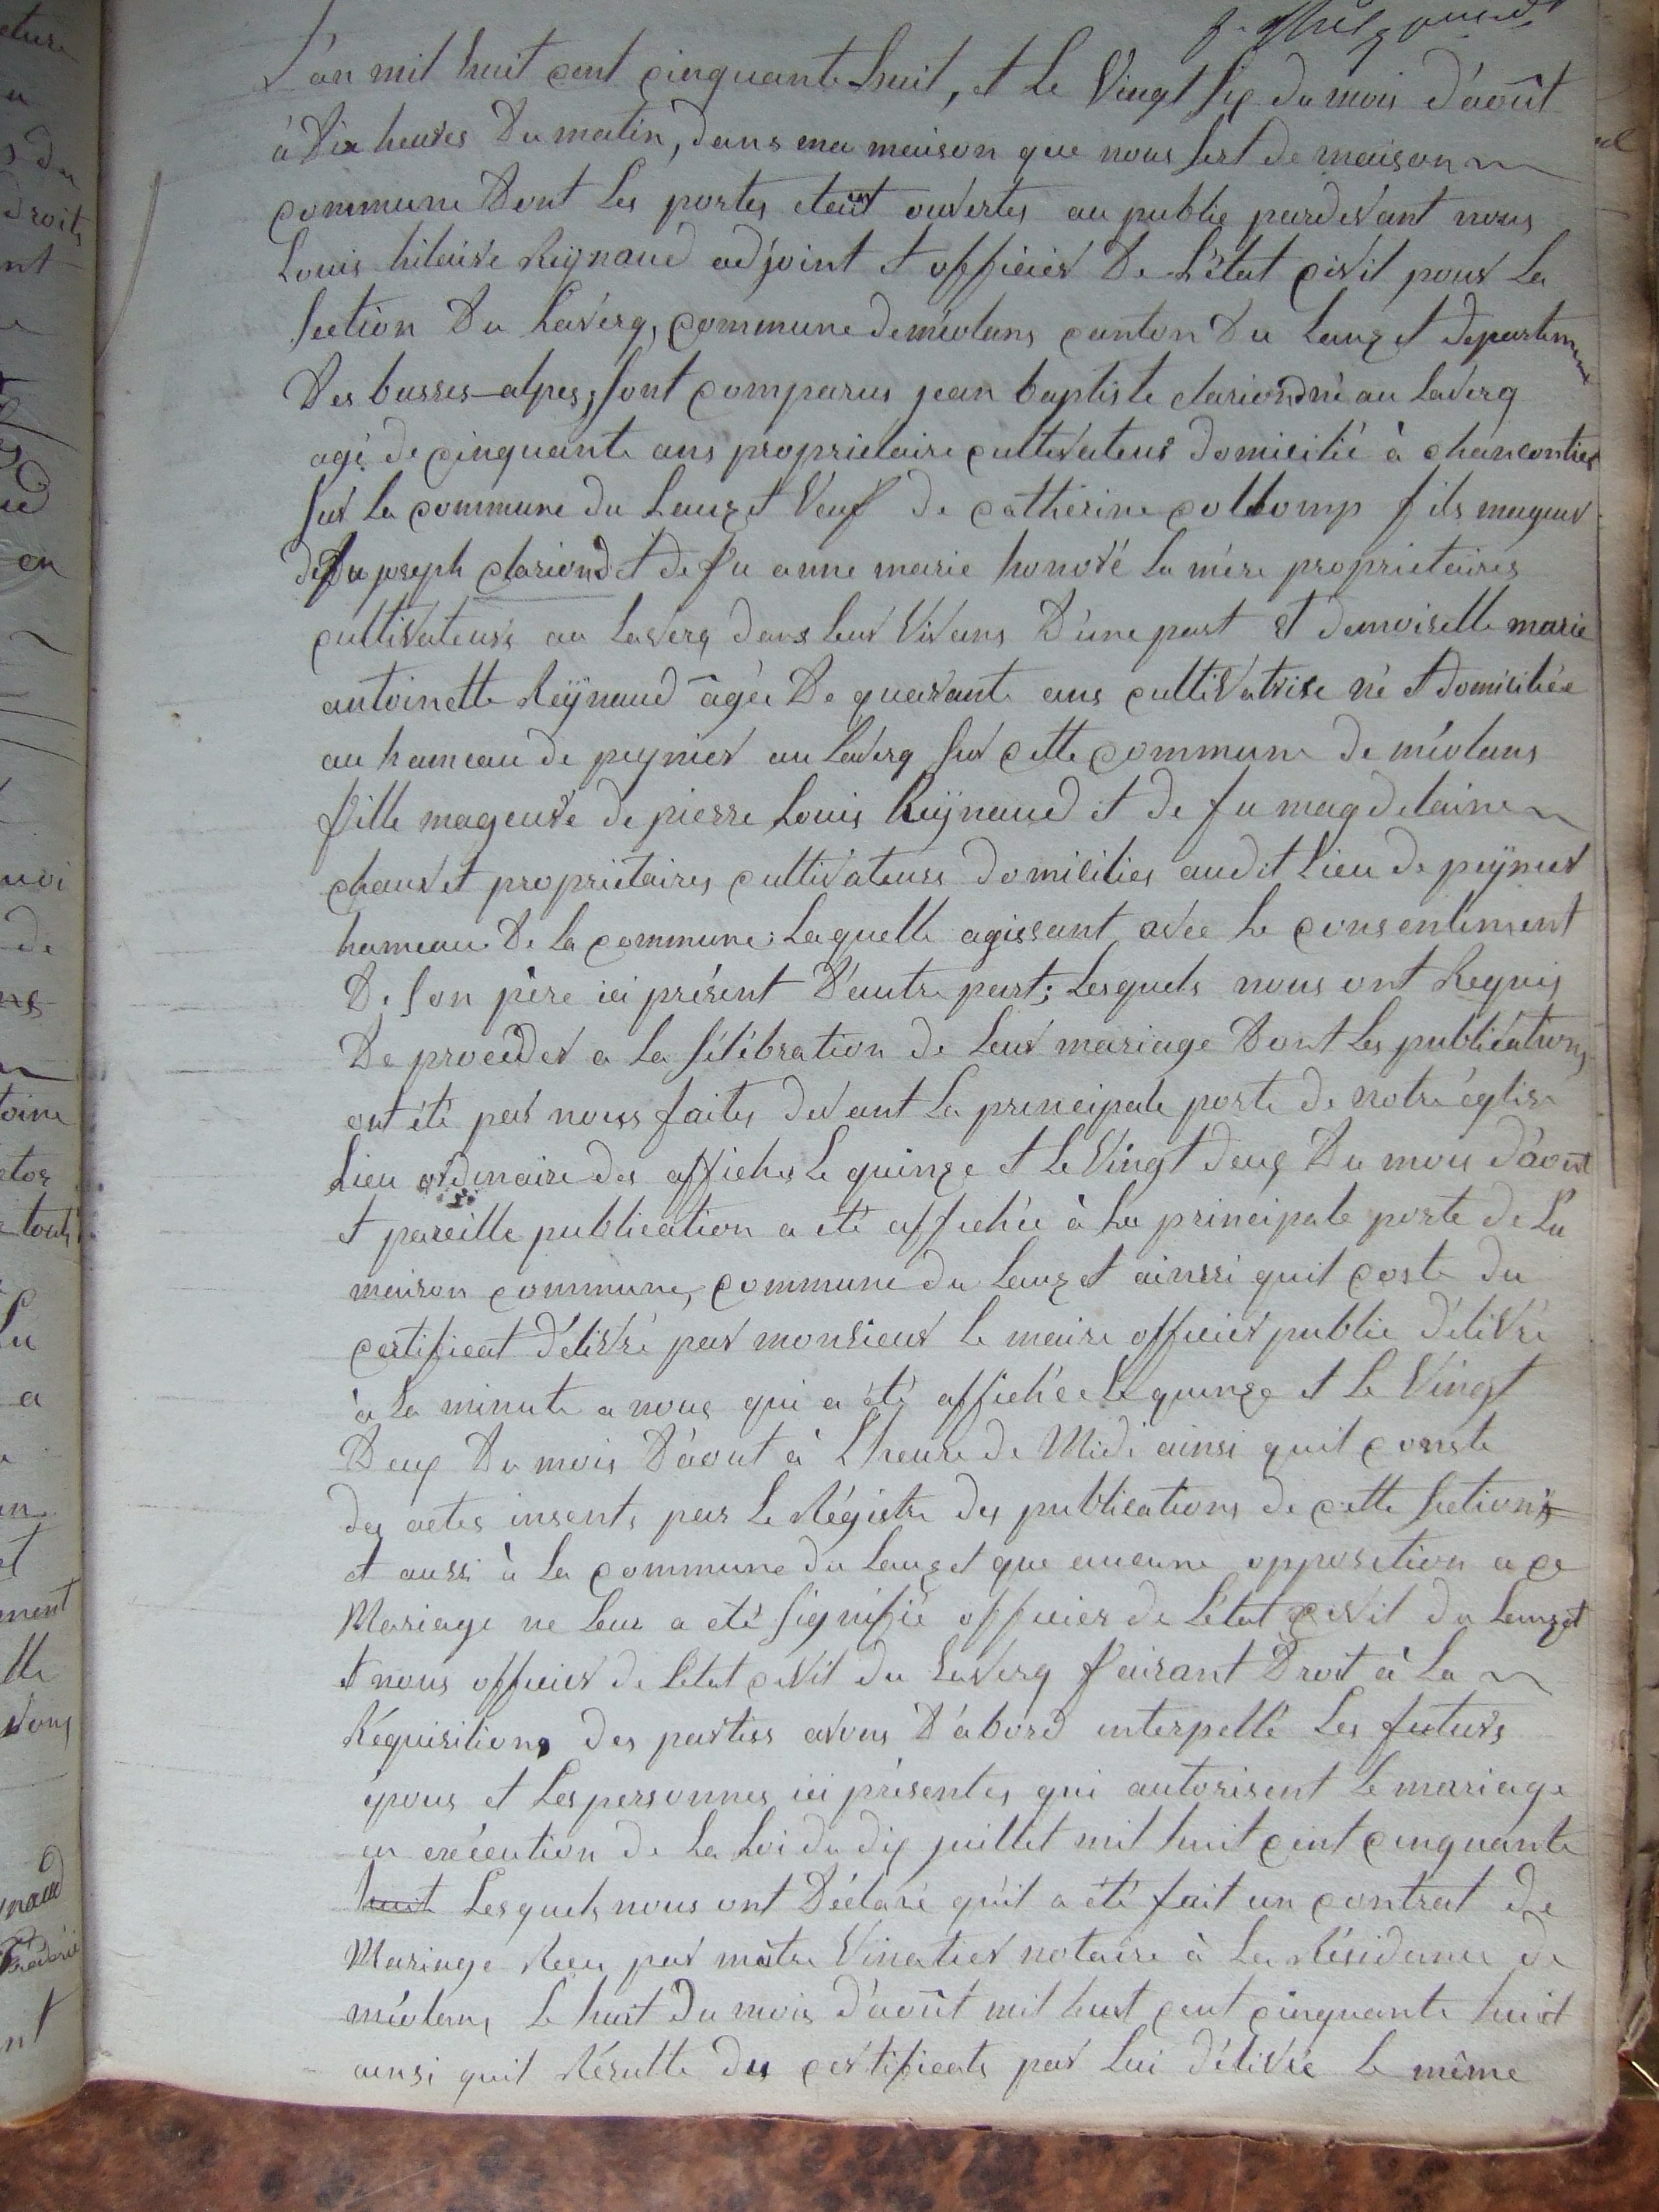 L'an mil huit cent cinquante huit, et le Vingt six du mois d'août
à Dix heures Du matin, dans ma maison que nous sert de maison
commune Dont les portes etant ouvertes au public pardevant nous
Louis hilaire Reÿnaud adjoint et officier De L'état civil pour La
section Du Laverq, commune de méolans canton Du Lauzet departement
Des basses-alpes, sont comparus jean baptiste clariond né au Laverq
agé de cinquante ans propriétaire cultivateur domicilié à chanconties
sur la commune du Lauzet Veuf de catherine collomp fils mageur
de fu joseph clariond et de fu anne marie honoré la mère proprietaires
cultivateurs au Laverq dans leur Vivans D'une part et demoiselle marie
antoinette Reÿnaud âgée De quarante ans cultivatrise né et domiciliée
au hameau de peynier au Laverq sur cette commune de méolans
fille mageure de pierre Louis Reÿnaud et de fu magdelaine
chauvet propriétaires cultivateurs domiciliés audit Lieu de peÿnier
hameau De la commune; Laquelle agissant avec le consentement
De son père ici présent D'autre part; Lesquels nous ont Requis
De proceder a La sélébration de Leur mariage Dont les publications
ont été par nous faites devant La principale porte de notre église
Lieu ordinaire des affiches Le quinze et Le Vingt deux Du mois d'août
et pareille publication a eté affichée à La principale porte de La
maison commune, commune du Lauzet ainssi quil coste du
certificat délivré par monsieur le maire officier public délivré
à La minute a nous qui a été affichée le quinze et le Vingt
Deux Du mois D'aout à L'heure de Midi ainsi quil conste
des actes inserits par Le Régistre des publications de cette section
et aussi à La commune du Lauzet que aucune opposition a ce
Mariage ne leur a eté signifié officier de L'état civil du Lauzet
et nous officier de l'état civil du Laverq faisant Droit à La
Réquisitions des parties avons D'abord interpellé Les futurs
épous et Les personnes ici présentes qui autorisent le mariage
en exécution de La Loi du dix juillet mil huit cent cinquante
huit Lesquels nous ont Déclaré qu'il a été fait un contrat de
Mariage Recu par maitre Vinatier notaire à La Résidance de
méolans le huit Du mois d'août mil huit cent cinquante huit
ainsi quil Résulte du certificats par Lui délivré le même